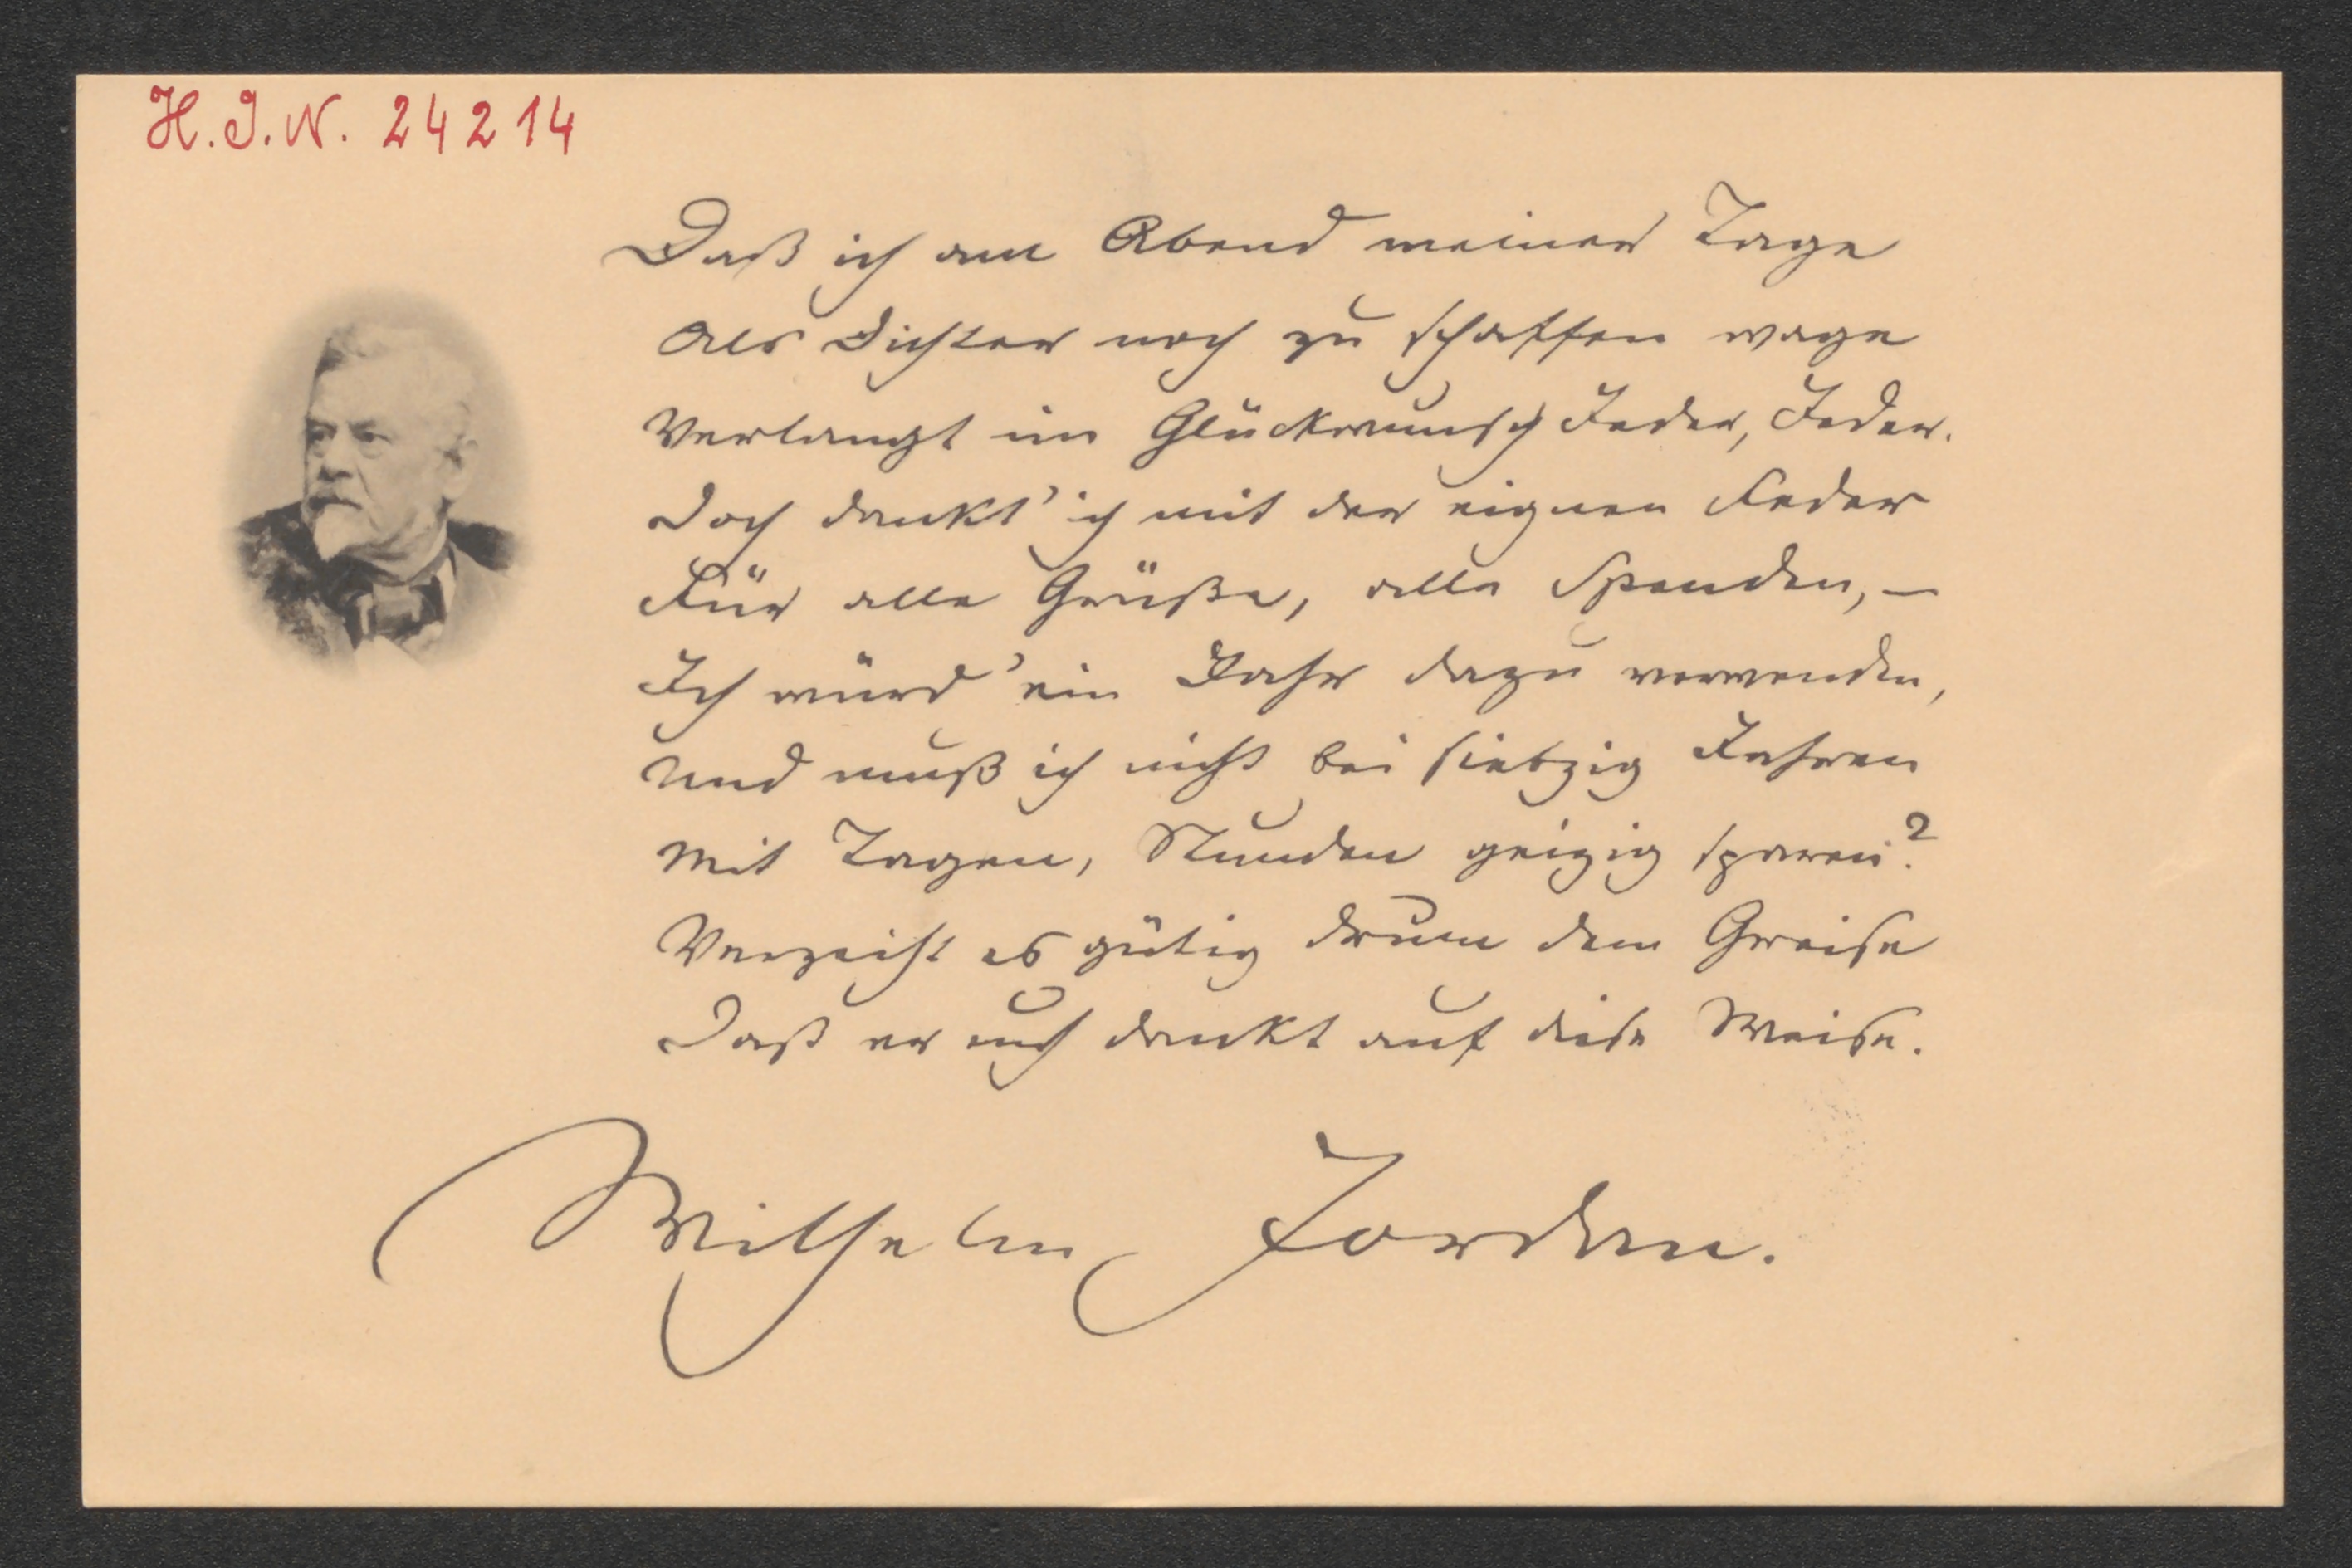 H. I. N. 24214
Daß ich am Abend meiner Tage
Als Dichter noch zu schaffen wage
Verlangt im Glückwunsch Jeder, Jeder.
Doch dankt' ich mit der eignen Feder
Für alle Grüße, alle Spenden, —
Ich würd' ein Jahr dazu verwenden,
Und muß ich nicht bei siebzig Jahren
Mit Tagen, Stunden geizig sparen?
Verzeiht es gütig drum dem Greise
Daß er euch dankt auf diese Weise.
Wilhelm Jordan.